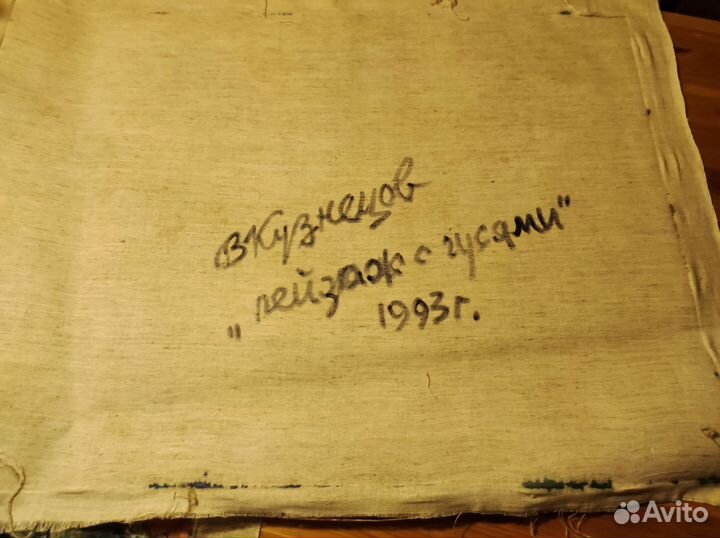 ВКузнецов
"пейзаж с гусями"
1993г.
Avito